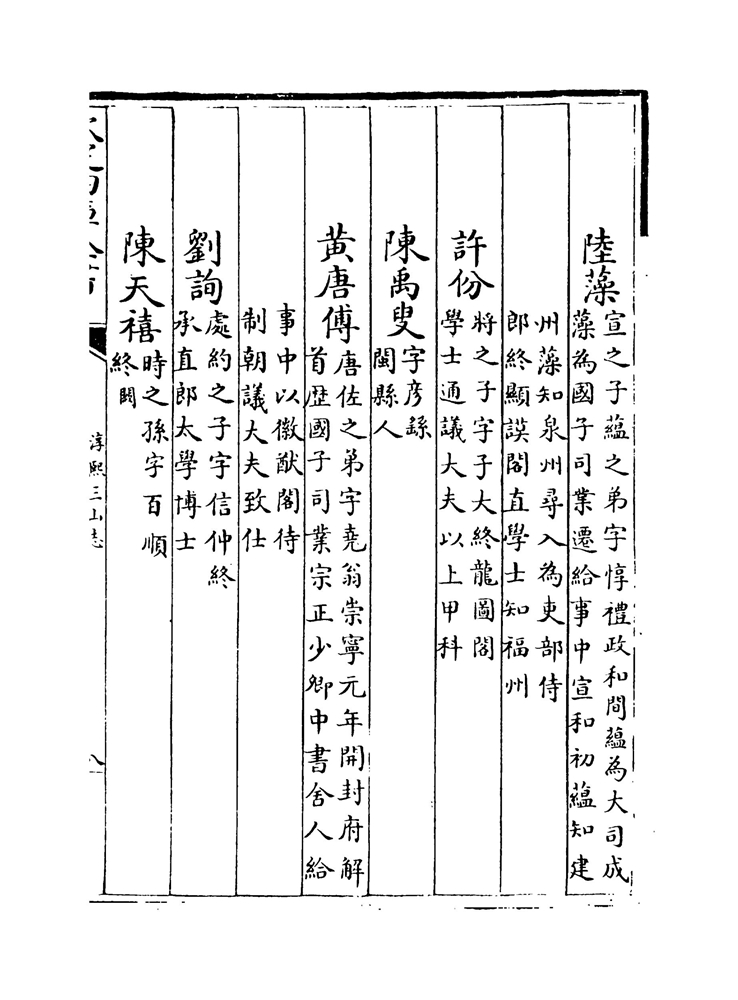 陸藻宣之子蘊之弟字惇禮政和間蘊為大司成
藻為國子司業遷給事中宣和初蘊知建
州藻知泉州尋入為吏部侍
郎終顯謨閣直學士知福州
許份將之子字子大終龍圖閣
學士通議大夫以上甲科
陳禹叟字彥繇
閩縣人
黃唐傅唐佐之弟字堯翁崇寧元年開封府解
首歴國子司業宗正少卿中書舍人給
事中以徽猷閣待
制朝議大夫致仕
劉詢處約之子字信仲終
承直郎太學博士
陳天禧時之孫字百順
終闕
淳熙三山志
八